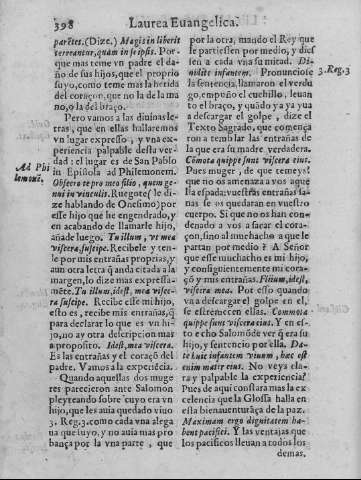 398 Laurea Euangelica.
parẽtes. (Dize.) Magis in liberis
terreantur, quàm in se ipsis. Por-
que mas teme vn padre el da-
ño de sus hijos, que el proprio
suyo, como teme mas la herida
del coraçon, que no la de la ma-
no, o la del braço.
Pero vamos a las diuinas le-
tras, que en ellas hallaremos
vn lugar expresso, y vna ex-
periencia palpable desta ver-
dad: el lugar es de San Pablo
in Epistola ad Philemonem.
Ad Phi
lemonẽ.
Obsecro te pro meo filio, quem ge-
nui in vinculis. Ruegote (le di-
ze hablando de Onesimo) por
esse hijo que he engendrado, y
en acabando de llamarle hijo,
añade luego, Tu illum, vt mea
viscera, suscipe. Recibele y ten-
le por mis entrañas proprias, y
aun otra letra q̃ anda citada a la
margen, lo dize mas expressa-
mẽte. Tu illum, idest, mea visce-
ra, suscipe. Recibe esse mi hijo,
esto es, recibe mis entrañas, q̃
para declarar lo que es vn hi-
jo, no ay otra descripcion mas
a proposito. Idest, mea viscera.
Es las entrañas y el coraçõ del
padre. Vamos a la experiẽcia.
Quando aquellas dos muge
res parecieron ante Salamon
pleyteando sobre cuyo era vn
hijo, que les auia quedado viuo
3. Reg. 3. como cada vna alega
ua ser suyo, y no auia mas pro
bança por la vna parte, que
por la otra, mando el Rey que
le partiessen por medio, y dies
sen a cada vna su mitad. Di-
uidite infantem. Pronunciose
3. Reg. 3
la sentencia, llamaron el verdu
go, empuño el cuchillo, leuan
to el braço, y quãdo ya ya yua
a descargar el golpe, dize el
Texto Sagrado, que començà
ron a temblar las entrañas de
la que era su madre verdadera.
Cõmota quippe sunt viscera eius.
Pues muger, de que temeys?
que no os amenaza a vos aquẽ
lla espada; vuestras entrañas sa
nas se os quedaran en vuestro
cuerpo. Si que no os han con-
denado a vos a sacar el cora-
çon, sino al muchacho a que le
partan por medio? A Señor
que esse muchacho es mi hijo,
y consiguientemente mi cora-
çõ, y mis entrañas. Filius, idest,
viscera mea. Por esso quando
va a descargar el golpe en el,
se estremecen ellas. Commota
quippe sunt viscera eius. Y en es-
to echo Salomõ de ver q̃ era su
hijo, y sentencio por ella. Da-
te huic infantem viuum, hæc est
enim mater eius. No veys cla-
ra y palpable la experiencia?
Pues de aqui consta ra mas la ex
celencia que la Glossa halla en
esta bienauenturãça de la paz.
Maximam ergo dignitatem ha-
bent pacifici. Y las ventajas que
los pacificos lleuan a todos los
demas.